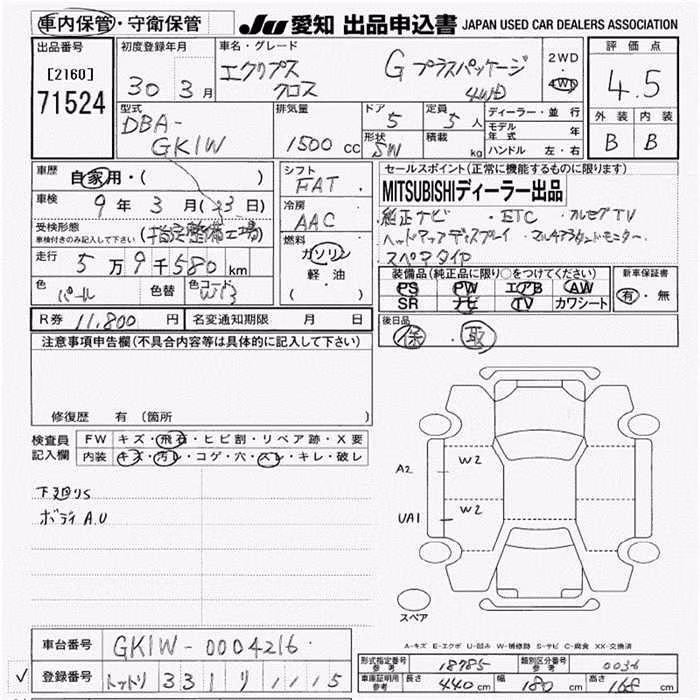 車内保管・守衛保管
JU 愛知 出品申込書 JAPAN USED CAR DEALERS ASSOCIATION
出品番号
[2160]
71524
初度登録年月
30年 3月
車名・グレード
エクリプス クロス
G プラスパッケージ 4WD
2WD
4WD
評価点
4.5
外装 内装
B B
型式
DBA-GK1W
排気量
1500 cc
ドア
5
定員
5人
形状
SW
積載
kg
ディーラー・並行
モデル年式 年
ハンドル 左・右
車歴
自家用・( )
車検
9年 3月(23日)
受検形態
車検付きのみ記入して下さい
(指定整備工場)
走行
5万9千580km
色
パール
色替
色コード
W13
シフト
FAT
冷房
AAC
燃料
ガソリン
軽油
( ・ )
セールスポイント(正常に機能するものに限ります)
MITSUBISHIディーラー出品
・純正ナビ ・ETC ・フルセグTV
・ヘッドアップディスプレイ ・マルチアラウンドモニター
・スペアタイヤ
装備品(純正品に限り○をつけて下さい)
PS PW エアB AW
SR ナビ TV カワシート
新車保証書
有・無
R券 11,800円 名変通知期限 月 日
後日品
保・取
注意事項申告欄(不具合内容等は具体的に記入して下さい)
修復歴 有(箇所
検査員記入欄
FW キズ・飛石・ヒビ割・リペア跡・X要
内装 キズ・汚レ・コゲ・穴・スレ・キレ・破レ
下廻りS
ボディA.U
A2
W2
UA1
W2
スペア
A-キズ E-エクボ U-凹み W-補修跡 S-サビ C-腐食 XX-交換済
車台番号 GK1W-0004216
登録番号 トットリ 331 リ 1115
形式指定番号 参考 18785 類別区分番号 参考 0036
車庫証明用 参考 長さ 440cm 幅 180cm 高さ 168cm